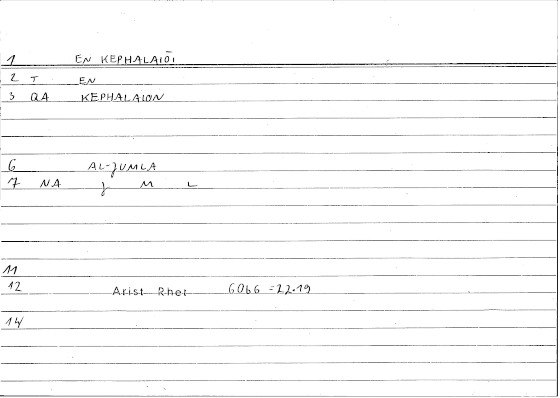 1 EN KEPHALAIŌI
2 T EN
3 QA KEPHALAION
6 AL-JUMLA
7 NA J M L
11
12 Arist Rhet 60b6 = 22.19
14